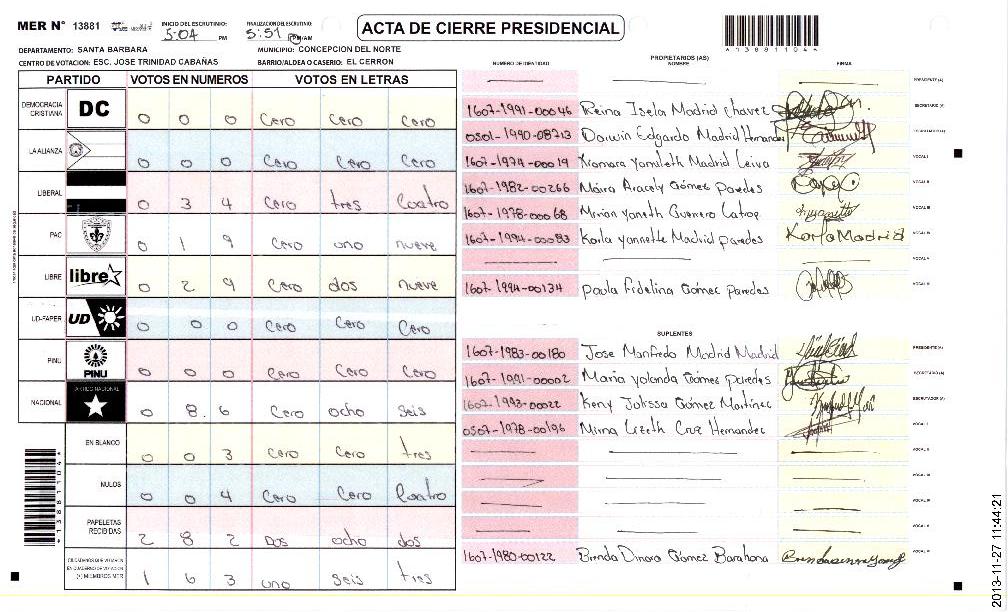 MER N° 13881
INICIO DEL ESCRUTINIO: 5:04 PM
FINALIZACION DEL ESCRUTINIO: 5:51 PM/AM
ACTA DE CIERRE PRESIDENCIAL
*138811044*
DEPARTAMENTO: SANTA BARBARA
MUNICIPIO: CONCEPCION DEL NORTE
CENTRO DE VOTACION: ESC. JOSE TRINIDAD CABAÑAS
BARRIO/ALDEA O CASERIO: EL CERRON
PARTIDO VOTOS EN NUMEROS VOTOS EN LETRAS
DEMOCRACIA CRISTIANA DC 0 0 0 Cero Cero Cero
LA ALIANZA 0 0 0 Cero Cero Cero
LIBERAL 0 3 4 Cero tres Cuatro
PAC 0 1 9 Cero uno nueve
LIBRE libre 0 2 9 Cero dos nueve
UD-FAPER UD 0 0 0 Cero Cero Cero
PINU PINU 0 0 0 Cero Cero Cero
NACIONAL PARTIDO NACIONAL 0 8. 6 Cero ocho seis
EN BLANCO 0 0 3 Cero Cero tres
NULOS 0 0 4 Cero Cero Cuatro
PAPELETAS RECIBIDAS 2 8 2 Dos ocho dos
CIUDADANOS QUE VOTARON EN CUADERNO DE VOTACION (+) MIEMBROS MER 1 6 3 uno seis tres
PROPIETARIOS (AS)
NUMERO DE IDENTIDAD NOMBRE FIRMA
PRESIDENTE (A)
1607-1991-00046 Reina Isela Madrid Chavez SECRETARIO (A)
0501-1990-08713 Darwin Edgardo Madrid Hernandez ESCRUTADOR (A)
1607-1974-00019 Xiomara Yamileth Madrid Leiva VOCAL I
1607-1982-00266 Maira Aracely Gómez Paredes VOCAL II
1607-1978-00068 Mirian Yaneth Guerrero VOCAL III
1607-1994-00083 Karla Yannette Madrid paredes Karla Madrid VOCAL IV
VOCAL V
1607-1994-00134 Paula Fidelina Gómez Paredes VOCAL VI
SUPLENTES
1607-1983-00180 Jose Manfredo Madrid Madrid PRESIDENTE (A)
1607-1991-00002 Maria Yolanda Gómez paredes SECRETARIO (A)
1607-1993-00022 Keny Julissa Gómez Martínez ESCRUTADOR (A)
0507-1978-00196 Mirna Lizeth Cruz Hernandez VOCAL I
VOCAL II
VOCAL III
VOCAL IV
VOCAL V
1607-1980-00122 Brenda Dinora Gómez Barahona VOCAL VI
*138811044*
2013-11-27 11:44:21